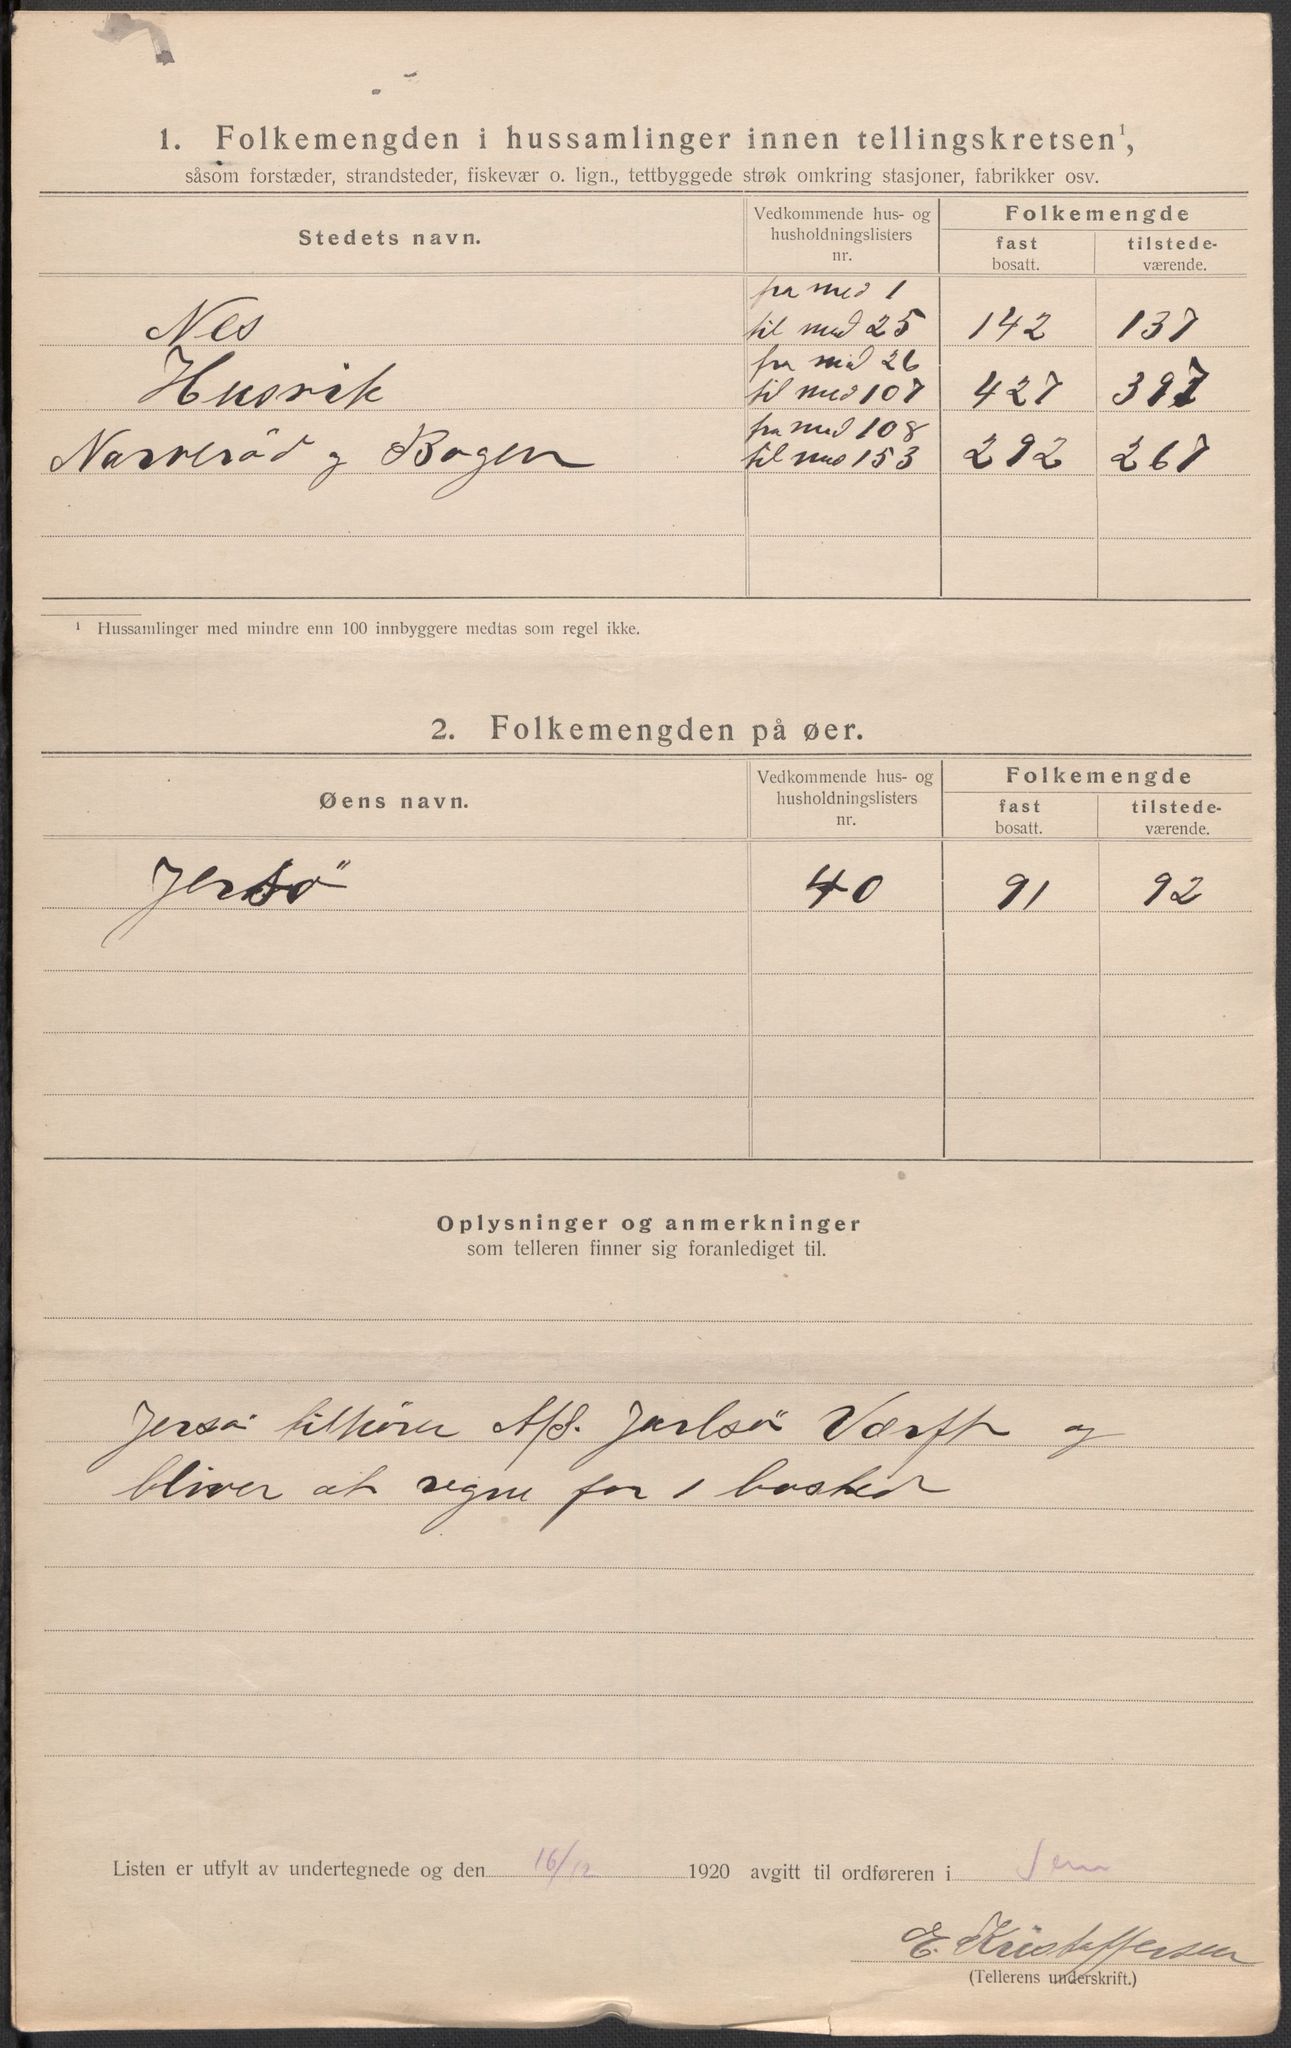 1. Folkemengden i hussamlinger innen tellingskretsen¹,
såsom forstæder, strandsteder, fiskevær o. lign., tettbyggede strøk omkring stasjoner, fabrikker osv.
Stedets navn.
Vedkommende hus- og husholdningslisters nr.
Folkemengde
fast bosatt.
tilstede-værende.
fra med 1
Nes til med 25 142 137
fra med 26
Husvik til med 107 427 397
fra med 108
Narverød og Bogen til med 153 292 267
¹ Hussamlinger med mindre enn 100 innbyggere medtas som regel ikke.
2. Folkemengden på øer.
Øens navn.
Vedkommende hus- og husholdningslisters nr.
Folkemengde
fast bosatt.
tilstede-værende.
Jersö 40 91 92
Oplysninger og anmerkninger
som telleren finner sig foranlediget til.
Jersö tilhører A/S. Jarlsö Værft og
bliver at regne for 1 bosted
Listen er utfylt av undertegnede og den 16/12 1920 avgitt til ordføreren i Sem
E. Kristoffersen
(Tellerens underskrift.)